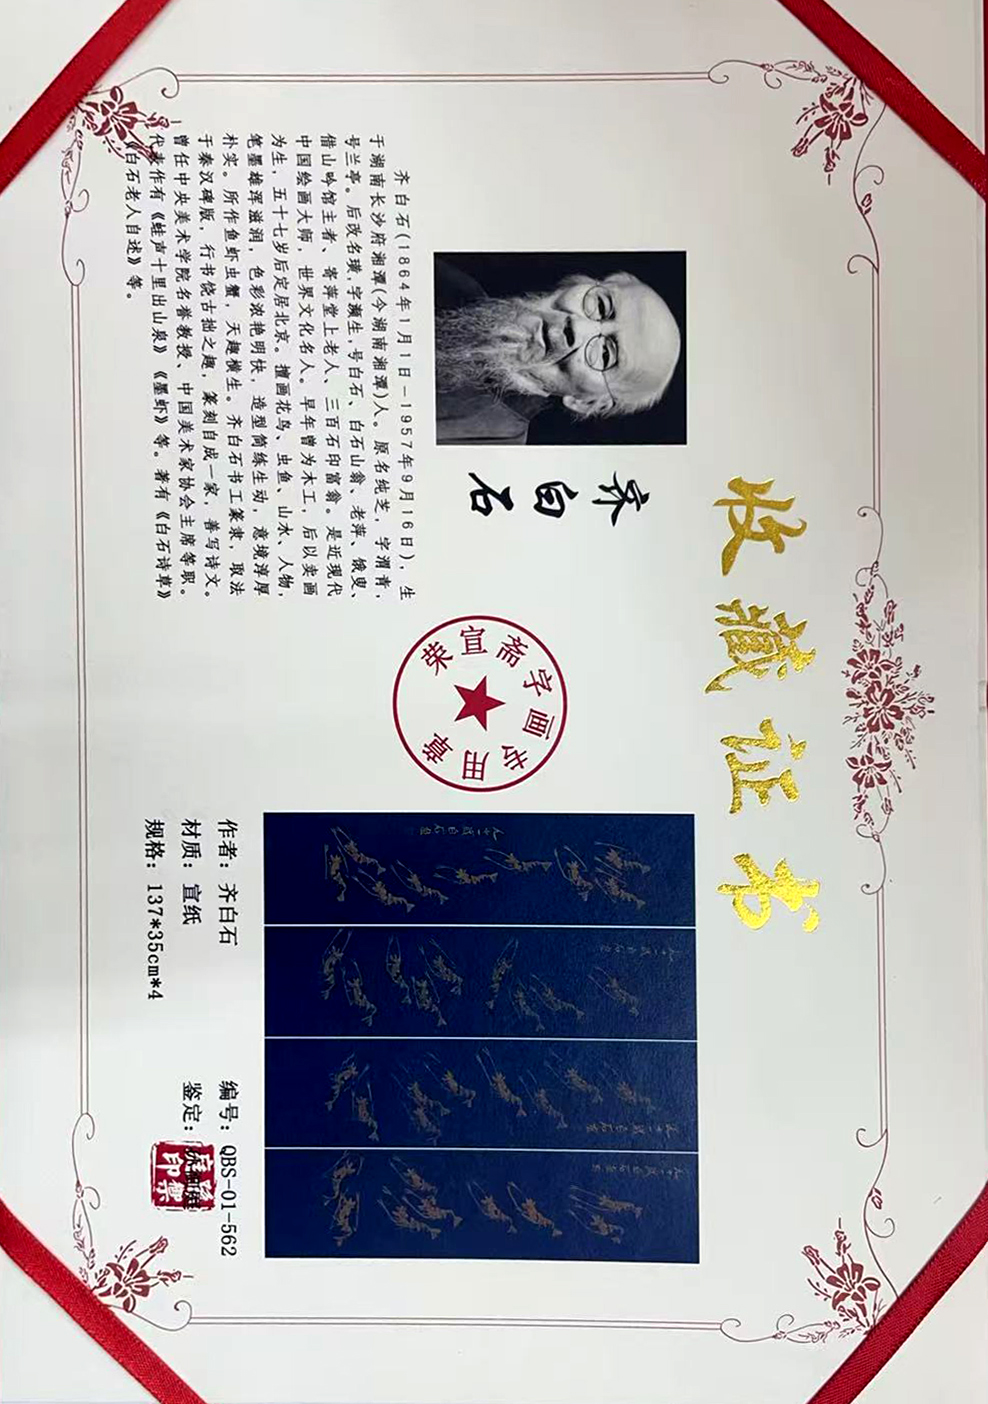 收藏证书
齐白石
齐白石(1864年1月1日—1957年9月16日)，生
于湖南长沙府湘潭(今湖南湘潭)人。原名纯芝，字渭青，
号兰亭。后改名璜，字濒生，号白石、白石山翁、老萍、饿叟、
借山吟馆主者、寄萍堂上老人、三百石印富翁。是近现代
中国绘画大师，世界文化名人。早年曾为木工，后以卖画
为生，五十七岁后定居北京。擅画花鸟、虫鱼、山水、人物，
笔墨雄浑滋润，色彩浓艳明快，造型简练生动，意境淳厚
朴实。所作鱼虾虫蟹，天趣横生。齐白石书工篆隶，取法
于秦汉碑版，行书饶古拙之趣，篆刻自成一家，善写诗文。
曾任中央美术学院名誉教授、中国美术家协会主席等职。
代表作有《蛙声十里出山泉》《墨虾》等。著有《白石诗草》
《白石老人自述》等。
荣宣斋字画专用章
作者：齐白石
材质：宣纸
规格：137*35cm*4
编号：QBS-01-562
鉴定：